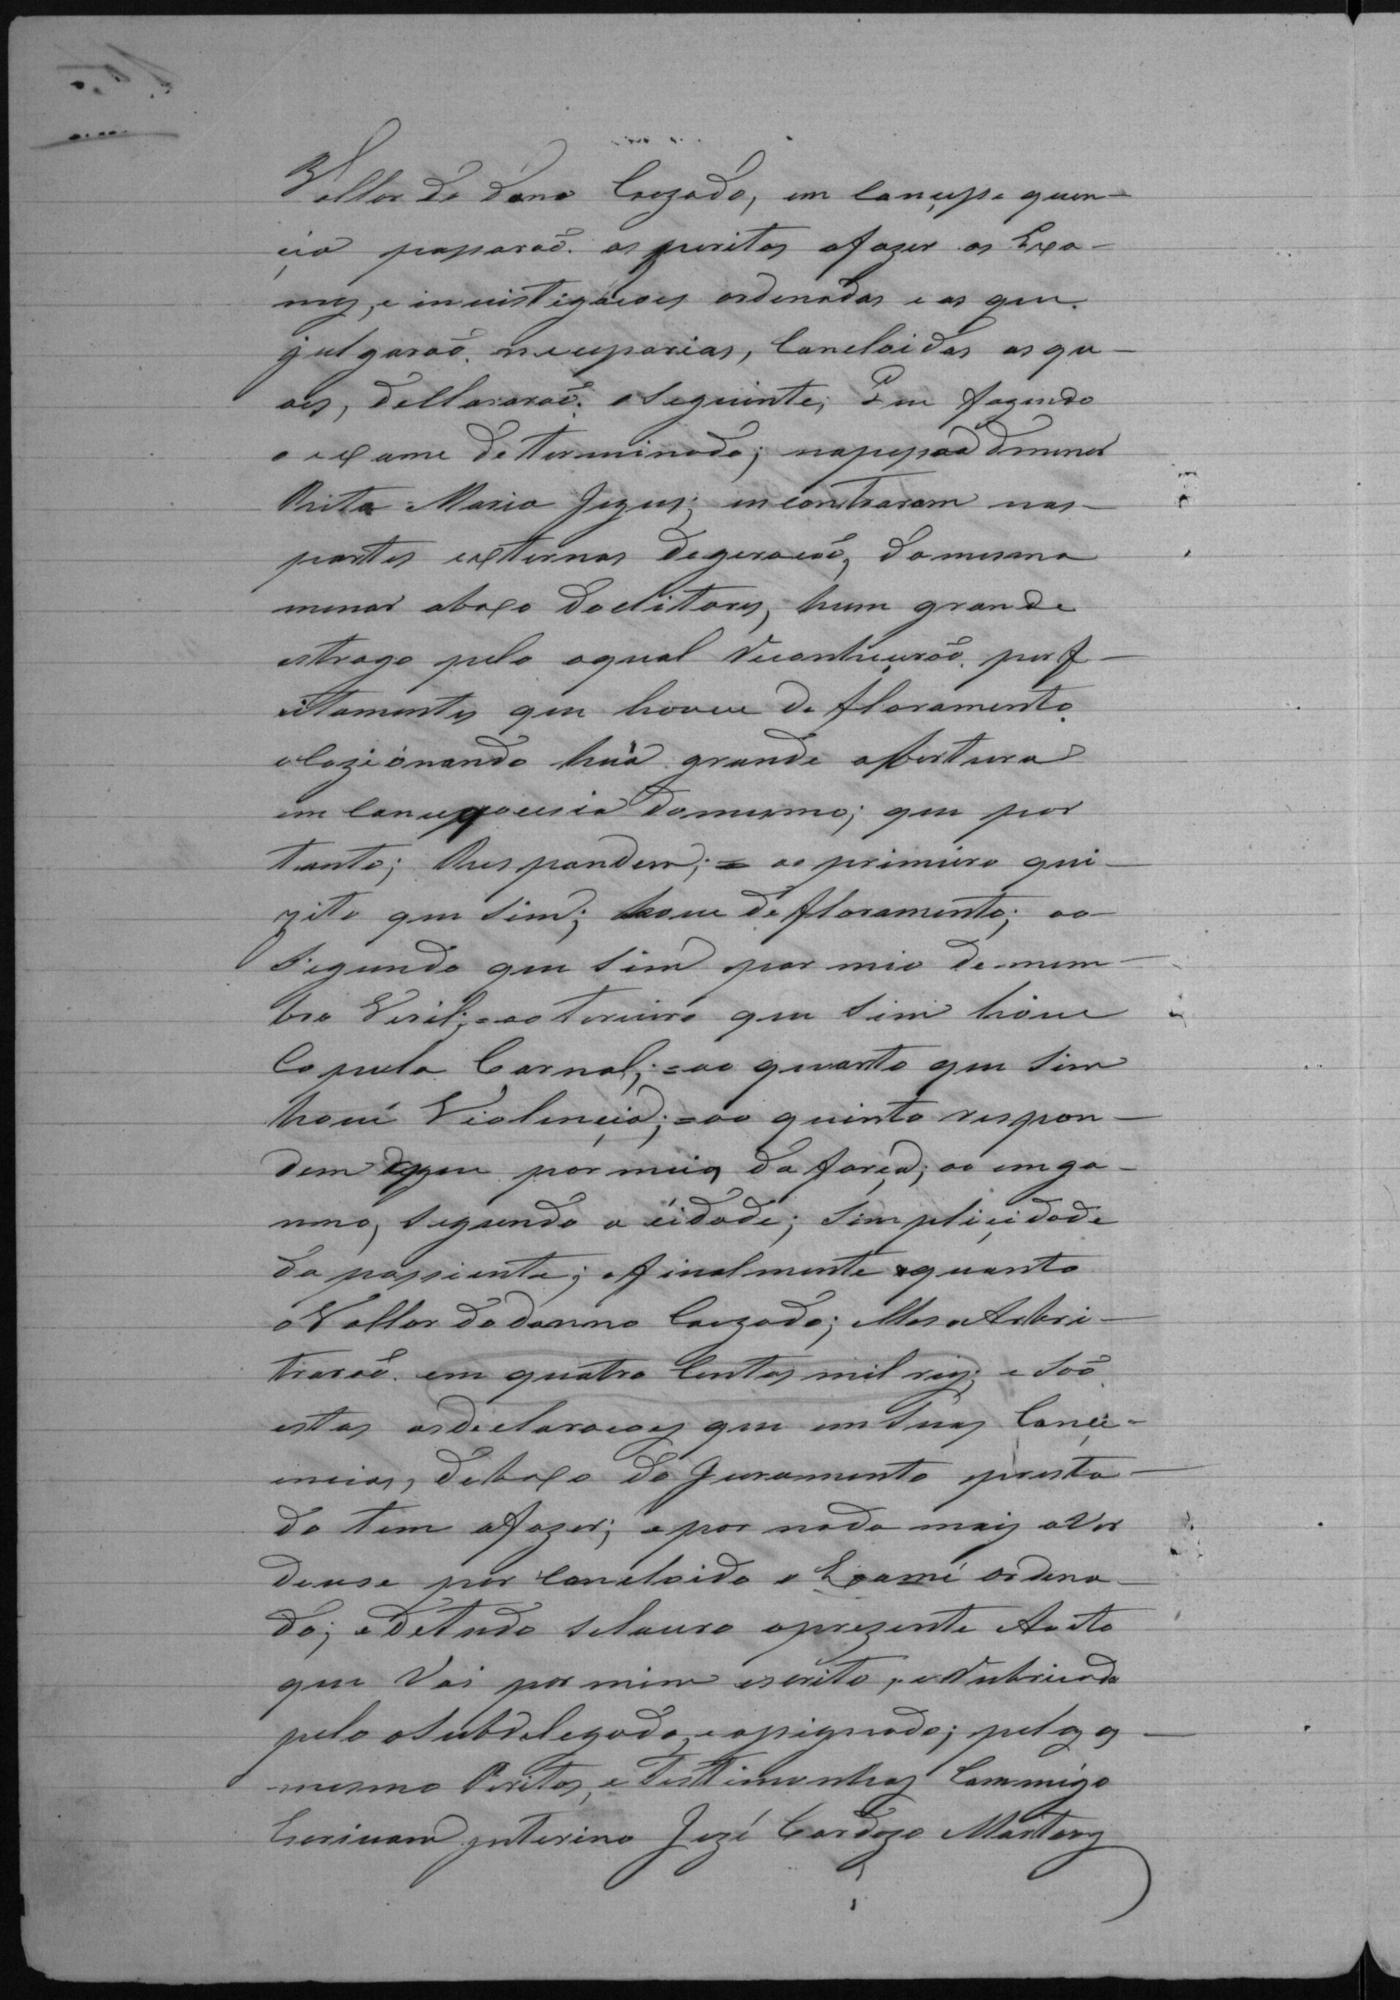 Vallor do dano Cauzado, em Concepe quen-
cia passarão os peritos afazer os Exa-
mes, e investigacoes ordenadas e as que
julgarão necessarias, Concloidas as qu-
aes, decllararão o seguinte; Que fazendo
o exame determinado; napessoa dmenor
Rita Maria Jezus; encontraram nas-
partes externas degeracaõ, damesma
menor abaxo doclitores, hum grande
estrago pelo aqual reconhecerão perf-
eitamentes que houve defloramento
ocazionando húa grande abertura
em Consequencia domesmo; que por
tanto; Responderam; = ao primeiro qui-
zito que sim; houve defloramento; ao
Segundo que sim por meio demem-
bro Veril; = ao terceiro que sim houve
Copula Carnal; = ao quarto que sim
houve Violencia; = ao quinto respon-
dem que por meios da força; ao enga-
nno, segundo a eidade; simplicidade
da passiente; e finalmente quanto
o Vallor dodanno Cauzado; Mesa Arbri-
trarão em quatro Centos mil reis; e são
estas asdeclaracoes que em suas Conci-
encias, debaxo do Juramento presta-
do tem afazer; e por nada mais aver
deuse por Concloido o Exame ordena-
do; e detudo selavra oprezente Aoto
que Vai por mim escrito, e Rubricado
pelo oSubdelegado, e assignado; pelos os
mesmo Peritos, e Testimunhas Commigo
Escrivam interino Jozé Cardozo Martens